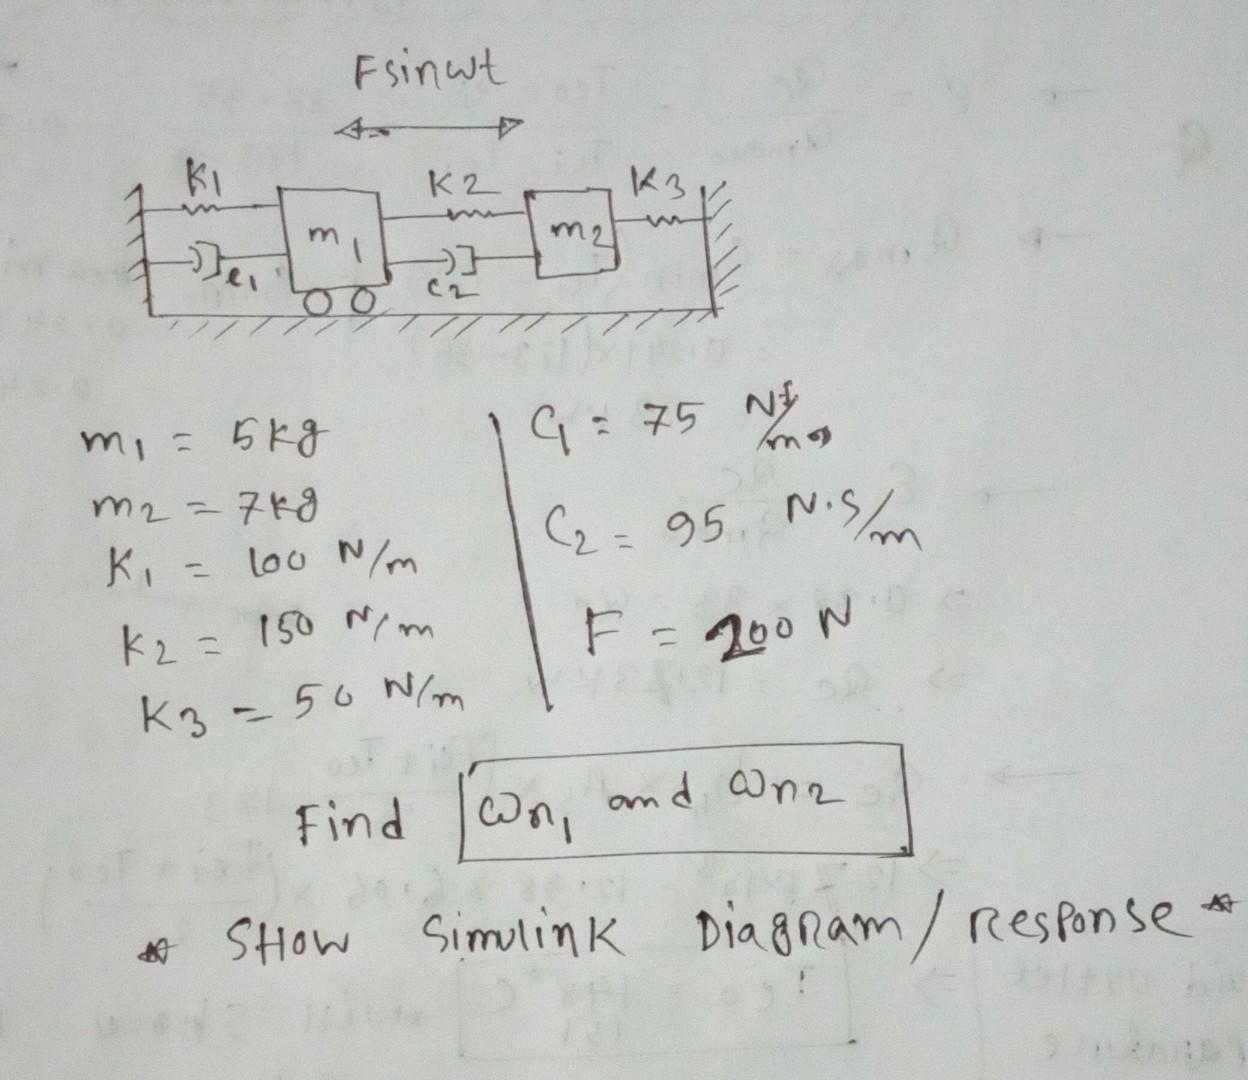 Fsinwt
K1 K2 K3
m1 m2
c1 c2
m1 = 5kg
m2 = 7kg
K1 = 100 N/m
K2 = 150 N/m
K3 = 50 N/m
C1 = 75
C2 = 95 N.S/m
F = 200 N
Find ωn1 and ωn2
* SHOW Simulink Diagram / Response *